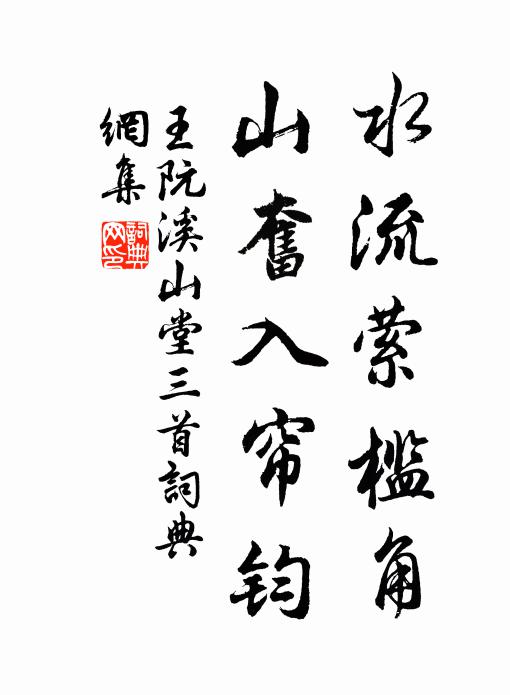 水流萦槛角
山奮入帘钧
王阮溪山堂三首詞典
網集
詞典
网印